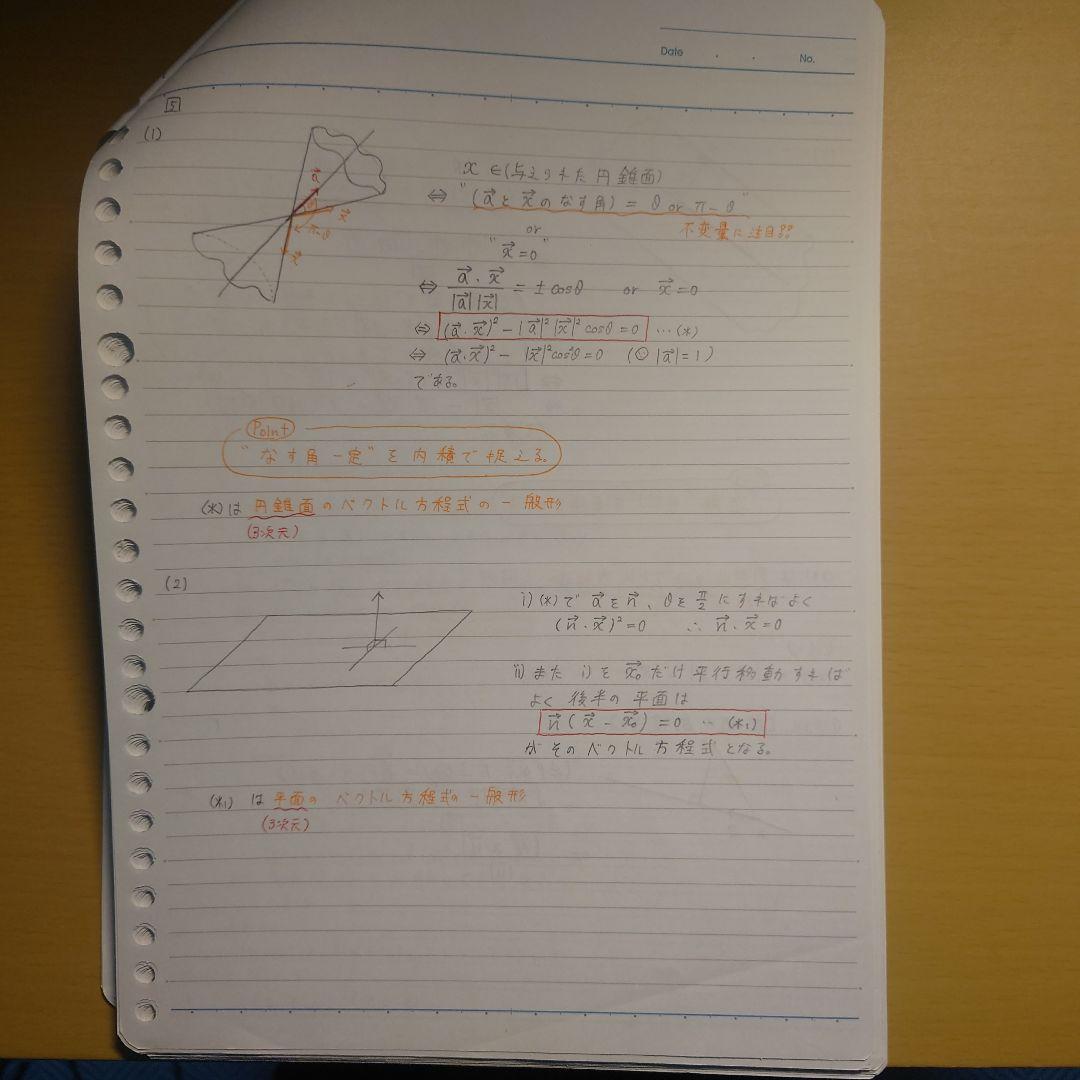 Date . . No.
5
(1)
x ∈ (与えられた円錐面)
⇔ "(a⃗とx⃗のなす角) = θ or π-θ"
不変量に注目!!
or
"x⃗=0"
⇔ a⃗・x⃗ / |a⃗||x⃗| = ± cosθ or x⃗=0
⇔ (a⃗・x⃗)² - |a⃗|²|x⃗|² cosθ = 0 …(*)
⇔ (a⃗・x⃗)² - |x⃗|²cos²θ = 0 (∵ |a⃗|=1)
である。
a⃗
θ
x⃗
π-θ
x⃗
Point
"なす角一定"を内積で捉える。
(*)は 円錐面のベクトル方程式の一般形
(3次元)
(2)
i) (*)で a⃗をn⃗、θをπ/2にすればよく
(n⃗・x⃗)²=0 ∴ n⃗・x⃗=0
ii) また i)を x⃗₀だけ平行移動すれば
よく 後半の平面は
n⃗(x⃗ - x⃗₀) = 0 … (*₁)
がそのベクトル方程式となる。
(*₁) は 平面の ベクトル方程式の一般形
(3次元)